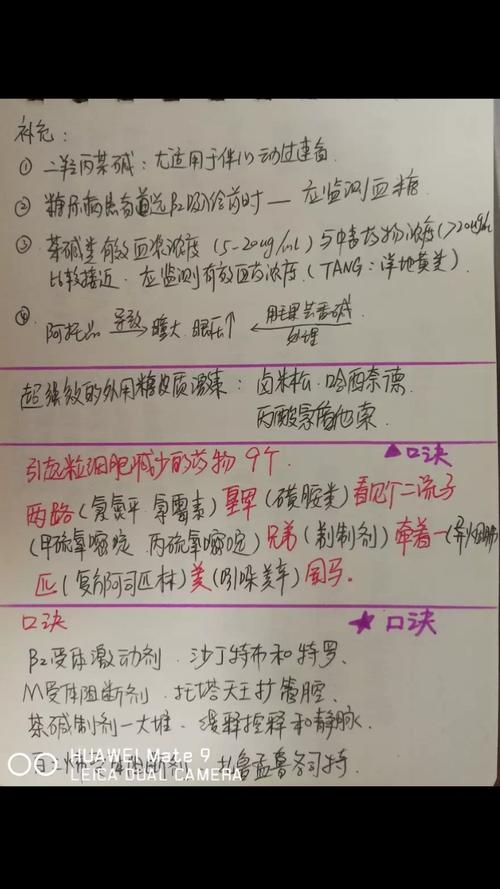 补充：
① 二羟丙茶碱：尤适用于伴心动过速者
② 糖尿病患者首选β2吸入给药时 — 应监测血糖
③ 茶碱类有效血浆浓度（5-20ug/mL）与中毒药物浓度（>20ug/mL
比较接近．应监测有效血药浓度．（TANG：洋地黄类）．
④ 阿托品 导致→ 瞳大．眼压↑ ← 用毛果芸香碱 处理
超强效的外用糖皮质激素：卤米松．哈西奈德．
丙酸氯倍他索．
引起粒细胞减少的药物 9个． ▲口诀
两路（氯氮平．氯霉素）（磺胺类）看见个二流子
（甲硫氧嘧啶．丙硫氧嘧啶）兄弟（制剂）牵着一（异烟肼
匹（复方阿司匹林）美（吲哚美辛）国马．
口诀 ★口诀
β2受体激动剂．沙丁特布和特罗．
M受体阻断剂．托塔天王扩管腔．
茶碱制剂一大堆．缓释控释和静脉．
白三烯受体阻断剂．扎鲁孟鲁各司特．
HUAWEI Mate 9
LEICA DUAL CAMERA